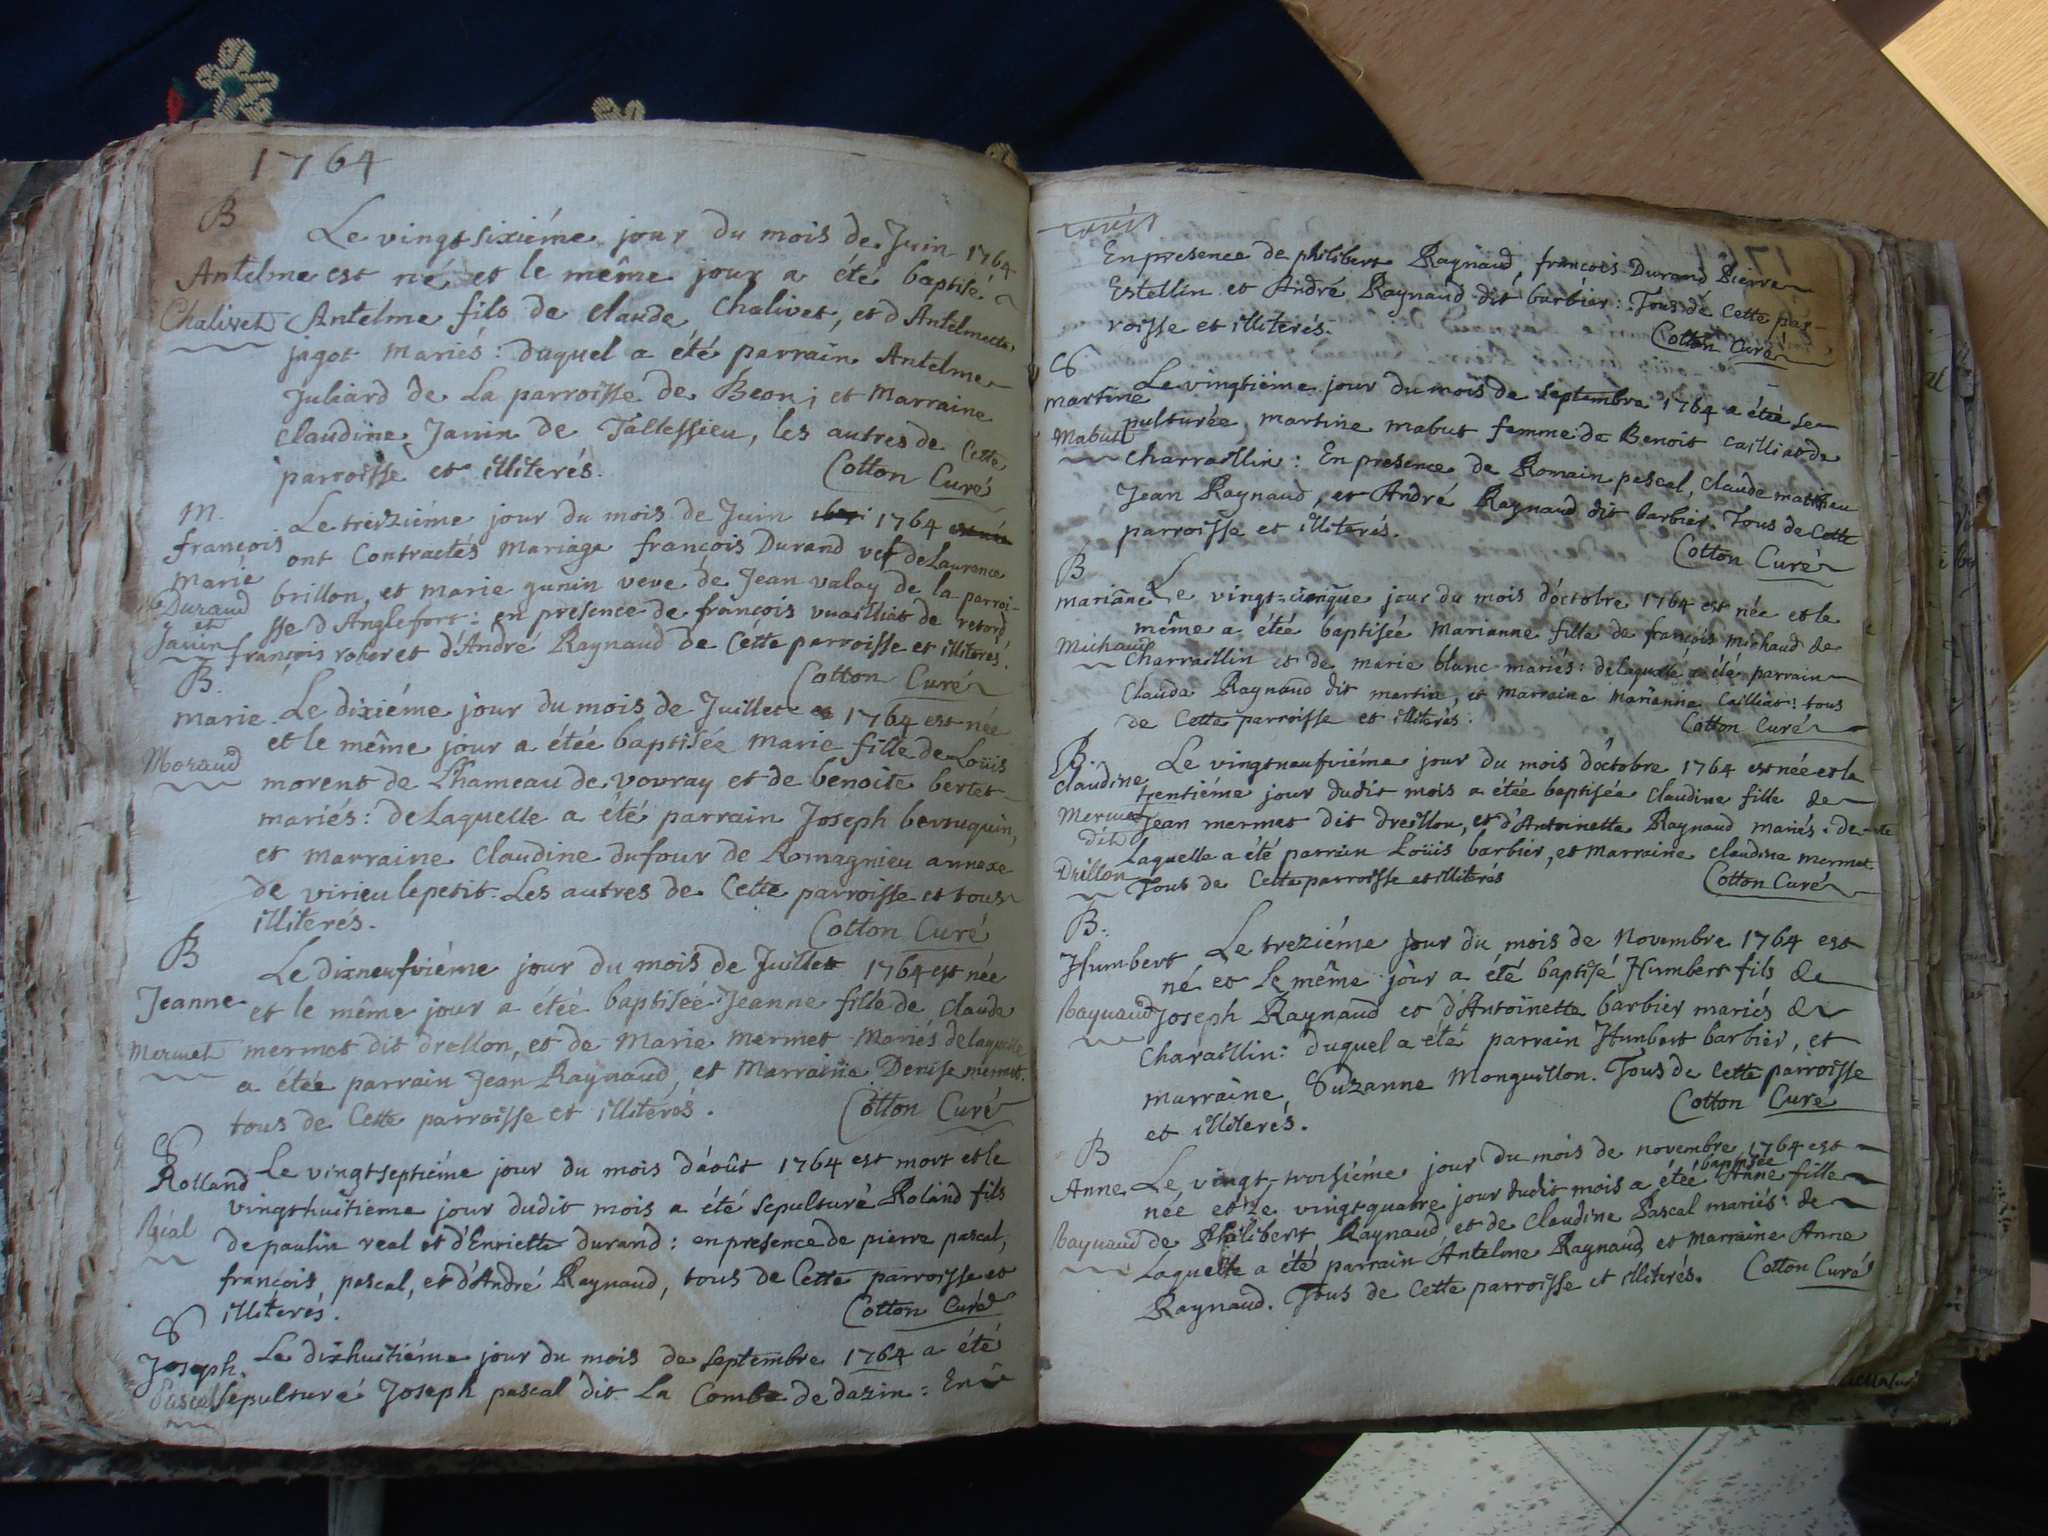 1764
B
Le vingt sixiéme jour du mois de Juin 1764
Antelme est né et le même jour a été baptisé
Chalivet Antelme fils de claude Chalivet, et d'Antelmette
jagot Mariés : duquel a été parrain Antelme
Juliard de La parroisse de Béon ; et Marraine
claudine Janin de Tallessieu, les autres de Cette
parroisse et illiterés. Cotton Curé
M.
Le treiziéme jour du mois de Juin 1764
françois ont Contractés Mariage françois Durand vef de Laurence
Marie brillon, et marie gunin veve de Jean valay de la parroi-
Durand sse d'Anglefort : en presence de françois vuailliat de retord
et
Janin françois rohoret d'André Raynaud de Cette parroisse et illiterés.
Cotton Curé
B.
marie. Le dixiéme jour du mois de Juillet 1764 est née
et le même jour a étée baptisée Marie fille de Loüis
Moraud morent de Lhameau de vovray et de benoite bertet
mariés : de Laquelle a été parrain Joseph berruquin,
et marraine Claudine dufour de Romagnieu annexe
de virieu le petit. Les autres de Cette parroisse et tous
illiterés. Cotton Curé
B
Le dixneufviéme jour du mois de Juillet 1764 est née
Jeanne et le même jour a étée baptiséé Jeanne fille de Claude
Mermet mermet dit drellon, et de Marie mermet Mariés de laquelle
a étée parrain Jean Raynaud, et Marraine Denise mermet.
tous de Cette parroisse et illiterés. Cotton Curé
S
Rolland Le vingt septiéme jour du mois d'août 1764 est mort et le
vingt huitieme jour dudit mois a été sepulturé Roland fils
Réal de paulin real et d'Enriette durand : en presence de pierre pascal,
françois pascal, et d'André Raynaud, tous de Cette parroisse et
illiterés. Cotton Curé
S
Joseph. Le dixhuitiéme jour du mois de septembre 1764 a été
Pascal sepulturé Joseph pascal dit La Combe de dazin : En
En presence de philibert Raynaud, françois Durand Pierre
Estellin et André Raynaud dit barbier : Tous de Cette par-
roisse et illiterés. Cotton Curé
S
martine Le vingtiéme jour du mois de septembre 1764 a étée se-
Mabut pulturée, martine mabut femme de Benoit cailliat de
charraillin : En presence de Romain pascal, Claude mathieu
Jean Raynaud, et André Raynaud dit barbier. Tous de Cette
parroisse et illiterés. Cotton Curé
B
marianne Le vingt-cinque jour du mois d'octobre 1764 est née et le
même a étée baptisée Marianne fille de françois michaud de
Michaud Charraillin et de marie blanc mariés : de laquelle a été parrain
Claude Raynaud dit martin, et marraine Marianne Cailliat : tous
de Cette parroisse et illiterés. Cotton Curé
B.
Le vingtneufviéme jour du mois d'octobre 1764 est née et le
claudine trentiéme jour dudit mois a étée baptisée Claudine fille de
Mermet Jean mermet dit dreillon, et d'Antoinette Raynaud mariés : de
dit Laquelle a été parrain Loüis barbier, et marraine claudine mermet
Drillon Tous de Cette parroisse et illiterés Cotton Curé
B.
Humbert Le treziéme jour du mois de Novembre 1764 est
né et le même jour a été baptisé Humbert fils de
Raynaud Joseph Raynaud et d'Antoïnette barbier mariés de
Charaillin : duquel a été parrain Humbert barbier, et
marraine, Suzanne Monguillon. Tous de Cette parroisse
et illiterés. Cotton Curé
B
Anne Le vingt-troisiéme jour du mois de novembre 1764 est
née et Le vingt quatre jour dudit mois a étée baptisée Anne fille
Raynaud de Philibert Raynaud et de Claudine Pascal mariés : de
Laquelle a été parrain Antelme Raynaud et marraine Anne
Raynaud. Tous de Cette parroisse et illiterés. Cotton Curé